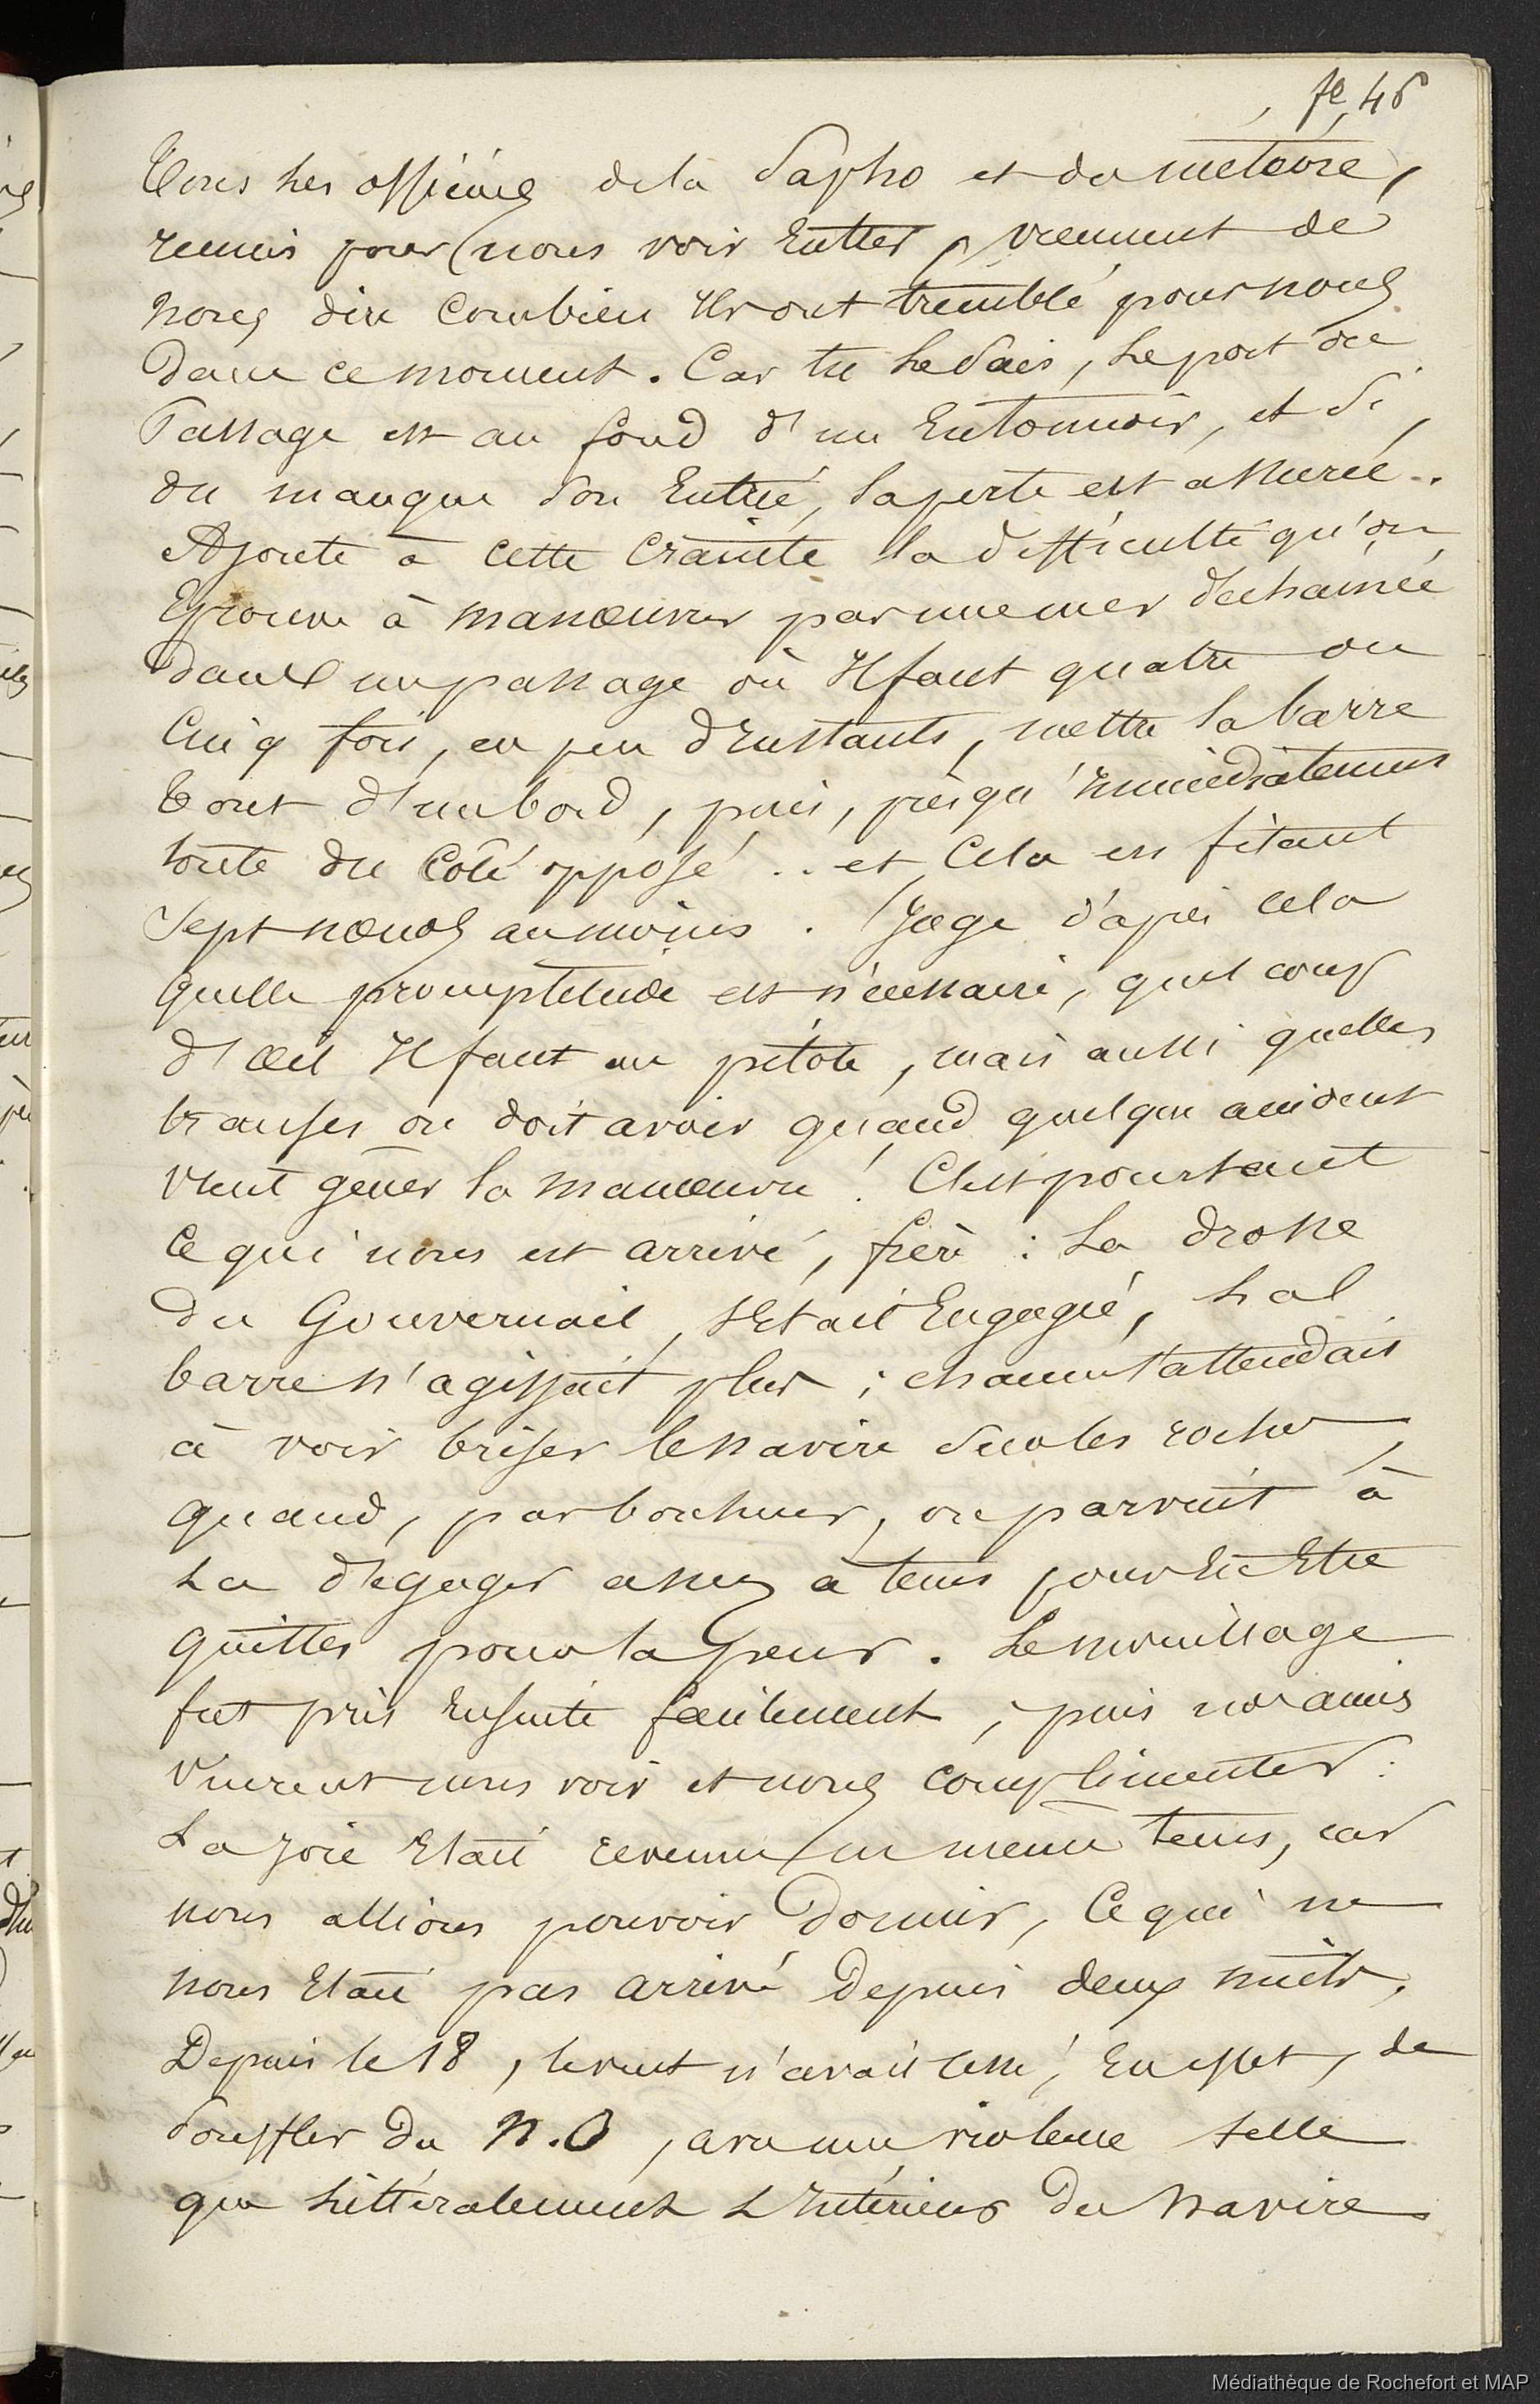 fe, 46
Tous les officiers de la Sapho et du météore,
reunis pour nous voir Entrer, viennent de
nous dire combien Ils ont tremblé pour nous
dans ce moment. Car tu le sais, le port du
Passage est au fond d'un Entonnoir, et si,
on manque son Entrée, la perte est assurée..
Ajoute à cette crainte la difficulté qu'on
Eprouve à manœuvrer par une mer déchainée
dans un passage où Il faut quatre ou
Cinq fois, en peu d'Instants, mettre la barre
tout d'un bord, puis, presqu'Immédiatement
toute du côté opposé .. et cela en filant
Sept nœuds au moins. Juge d'après cela
quelle promptitude est nécessaire, quel coup
d'œil Il faut au pilote, mais aussi quelles
transes on doit avoir quand quelque accident
vient gêner la manœuvre! C'est pourtant
ce qui nous est arrivé, frère : La drosse
du Gouvernail, s'Etait Engagée, la
barre n'agissait plus ; chacun s'attendait
à voir briser le navire sur les roches,
quand, par bonheur, on parvint à
La dégager assez à tems pour En Etre
quittes pour la peur. Le mouillage
fut pris Ensuite facilement, puis nos amis
vinrent nous voir et nous complimenter :
La joie Etait revenue en même tems, car
nous allions pouvoir dormir, ce qui ne
nous Etait pas arrivé depuis deux nuits.
Depuis le 18, le vent n'avait cessé, En effet, de
Souffler du N.O, avec une violence telle
que littéralement L'Intérieur du navire
Médiathèque de Rochefort et MAP